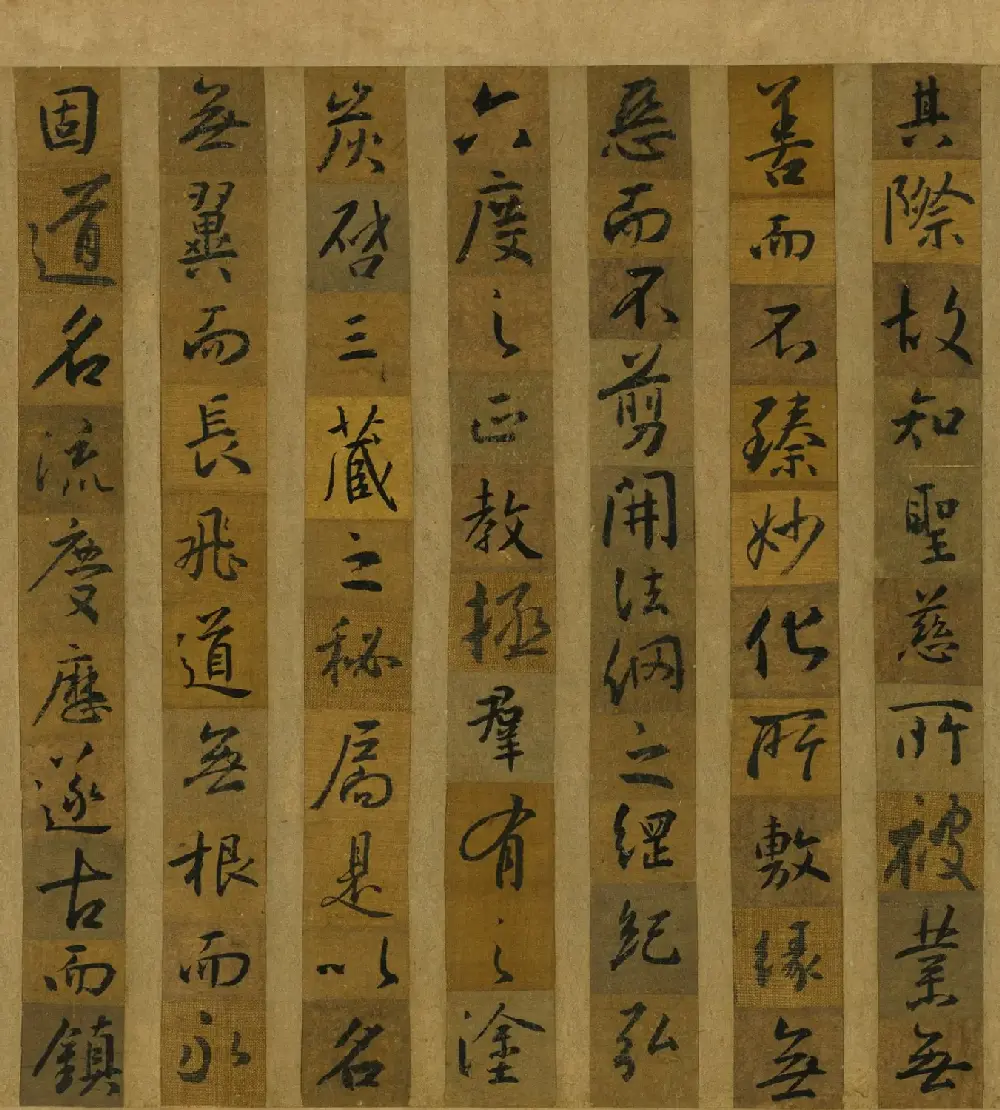 其際故知聖慈所被業無
善而不臻妙化所敷緣無
惡而不剪開法網之綱紀弘
六度之正教拯羣有之塗
炭啓三藏之秘扃是以名
無翼而長飛道無根而永
固道名流慶歷遂古而鎮